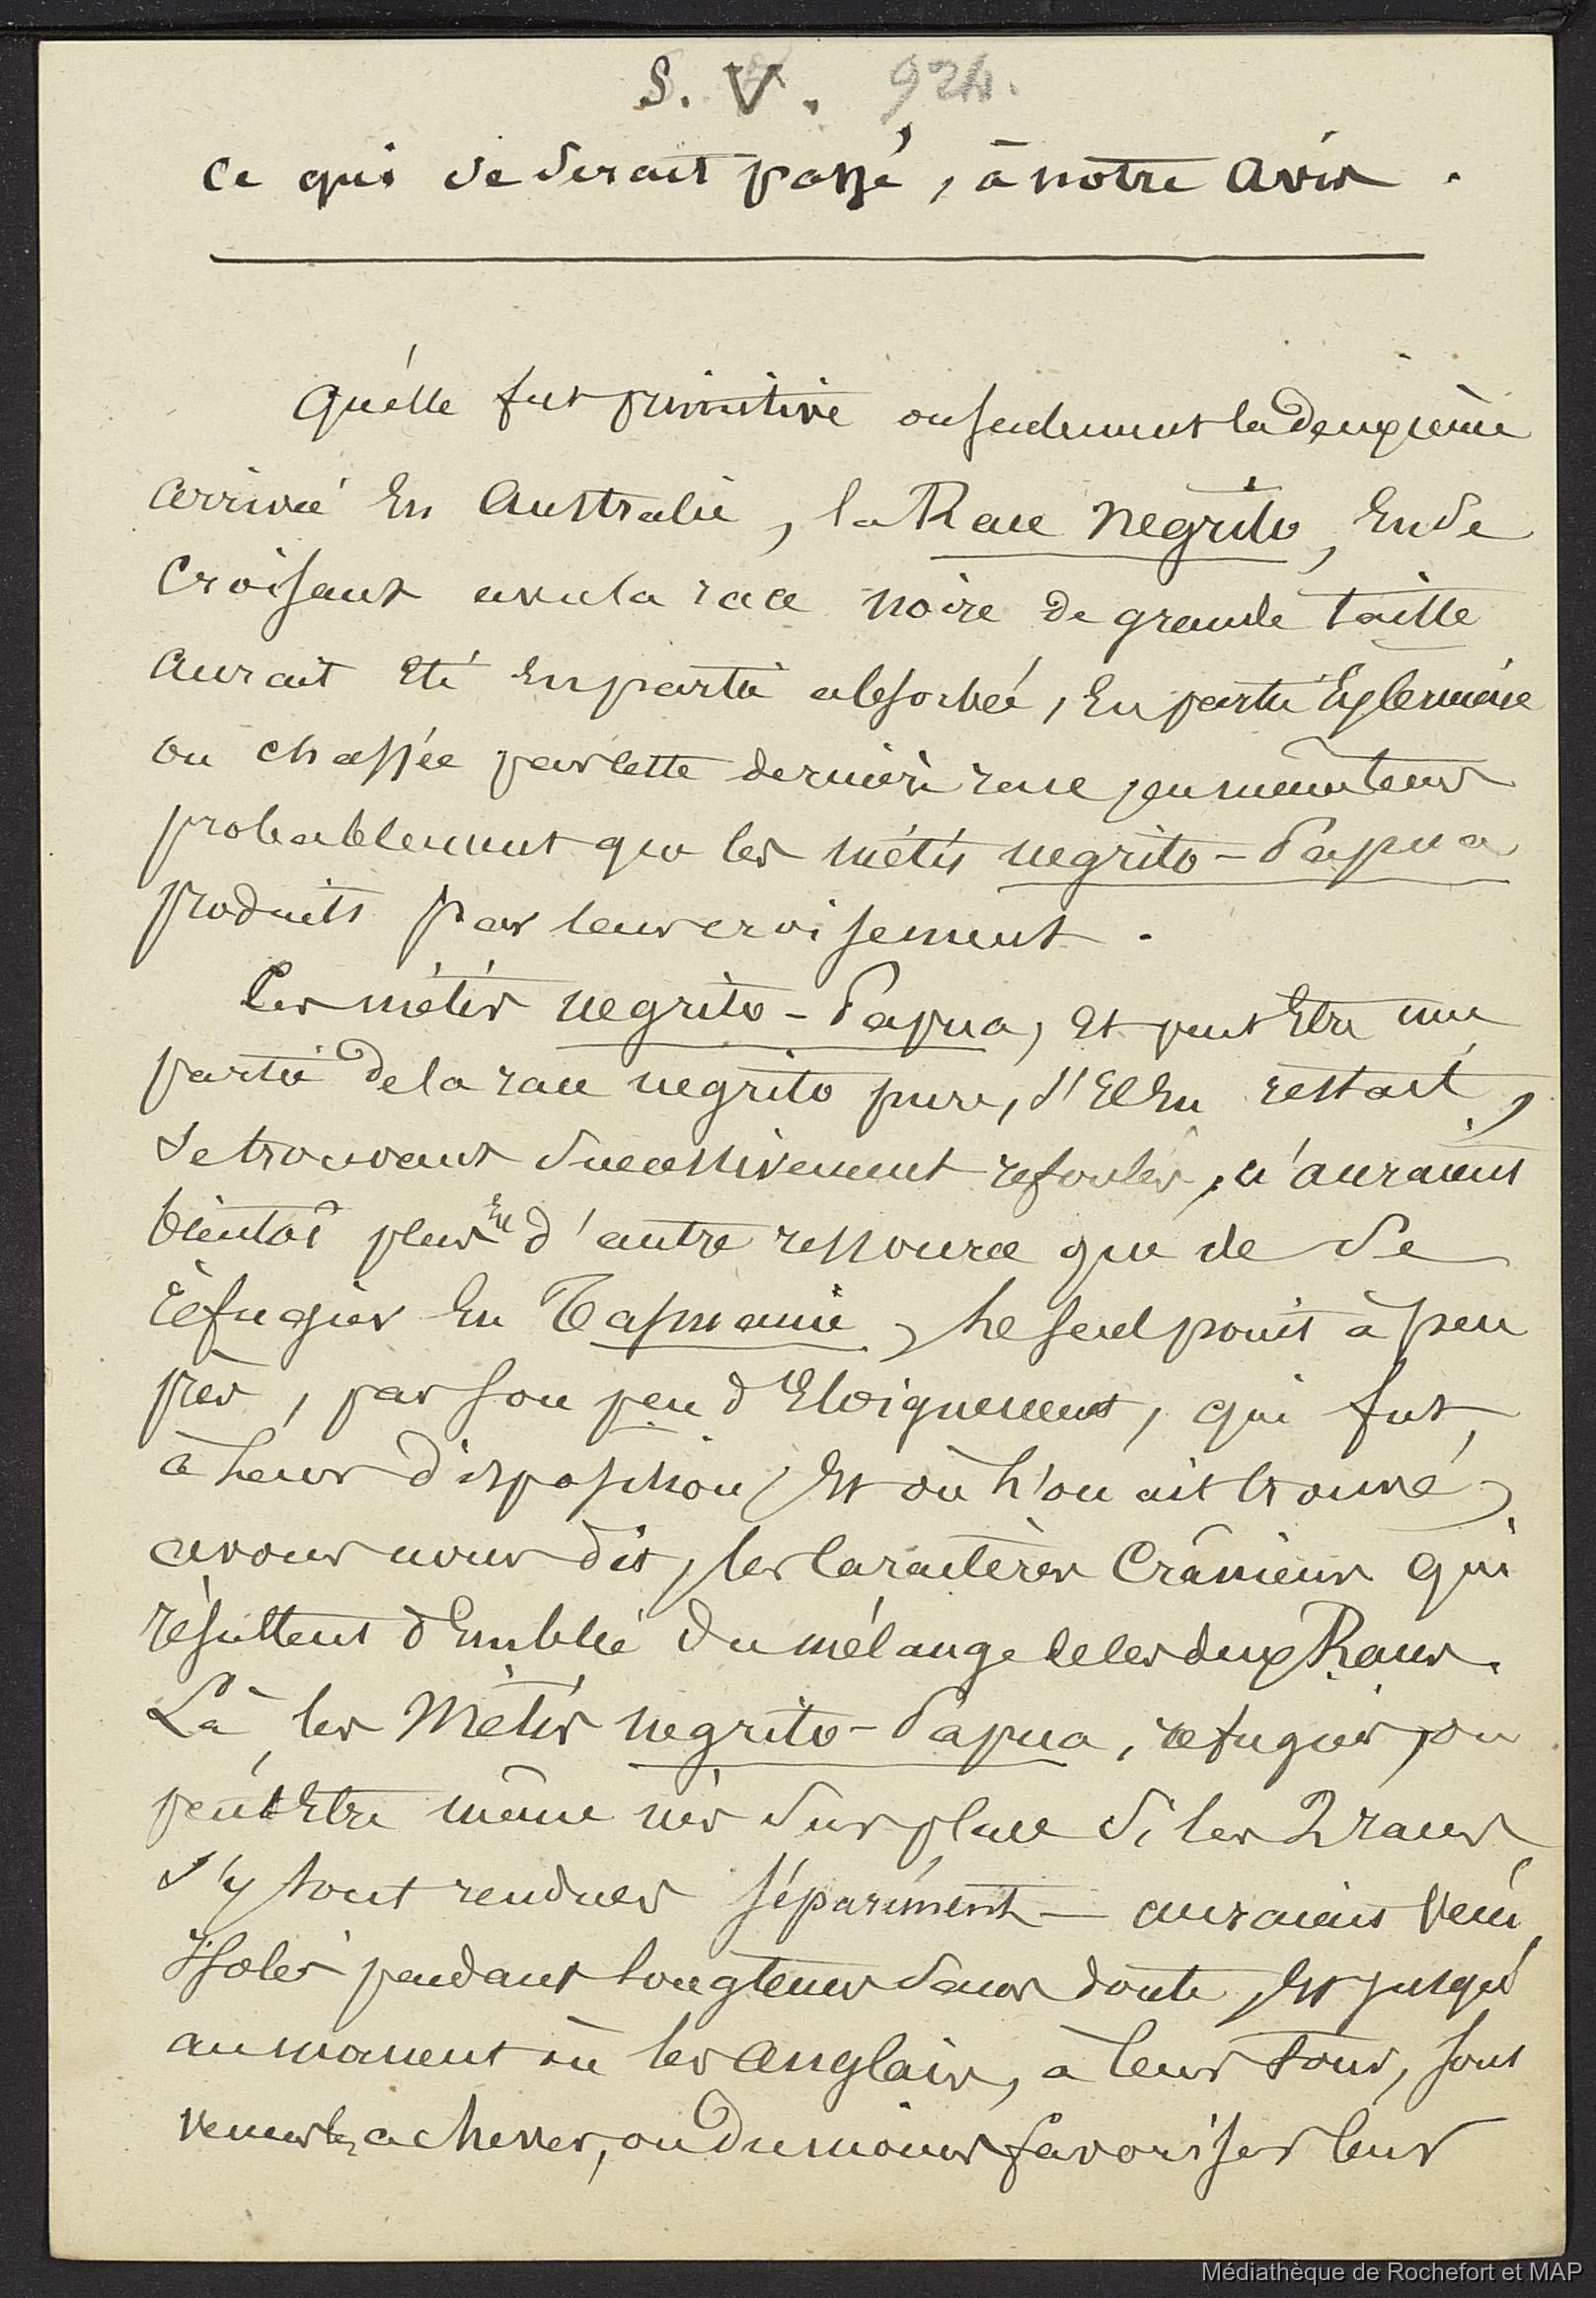 S. V. 924.
Ce qui se serait passé, à notre avis.
Qu'elle fut primitive ou seulement la deuxième
arrivée en Australie, la Race negrito, en se
croisant avec la race noire de grande taille
aurait été en partie absorbée, en partie exterminée
ou chassée par cette dernière race
probablement que les métis negrito-Papua
produits par leur croisement.
Les métis negrito-Papua, et peut être une
partie de la race negrito pure, s'il en restait,
se trouvant successivement refoulés, n'auraient
bientôt plus eu d'autre ressource que de se
réfugier en Tasmanie, le seul point à peu
près, par son peu d'éloignement, qui fut
à leur disposition, et où l'on ait trouvé,
avons nous dit, les caractères crâniens qui
résultent d'emblée du mélange de ces deux Races.
Là, les Métis negrito-Papua, refugiés, ou
peut être même nés sur place si les 2 races
s'y sont rendues séparément — auraient vécu
isolés pendant longtemps sans doute, et jusqu'
au moment où les Anglais, à leur tour, sont
venus achever, ou du moins favoriser leur
Médiathèque de Rochefort et MAP